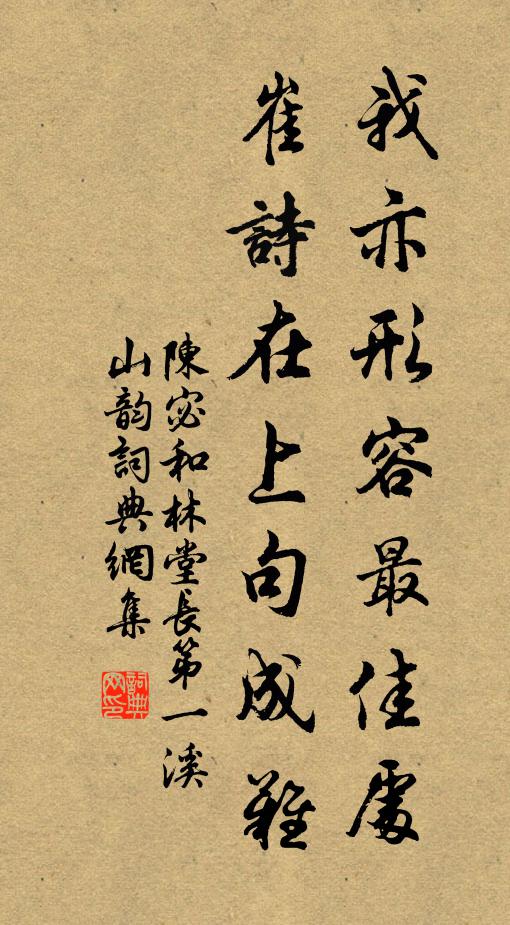 我亦形容最佳處
崔詩在上句成難
陳宓和林堂長第一溪
山韵詞典網集
詞典
网印